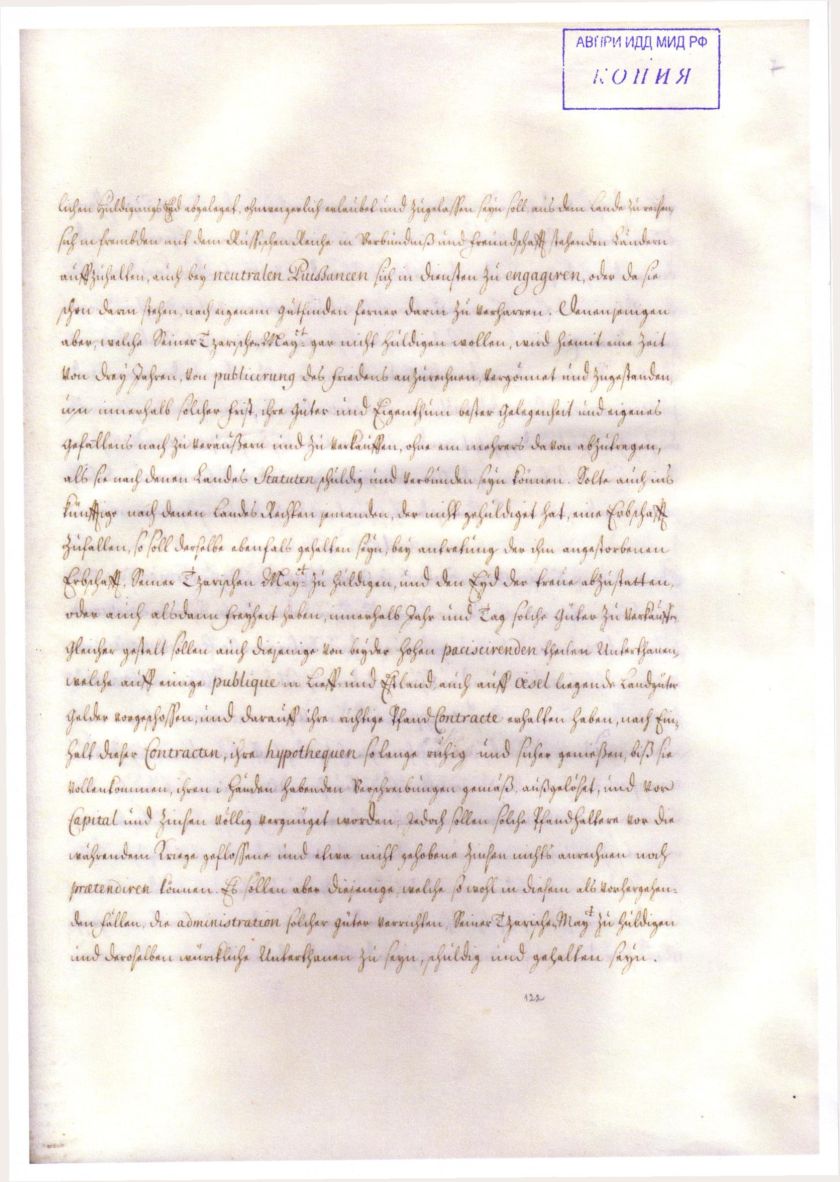 АВПРИ ИДД МИД РФ
КОПИЯ
lichen Huldigungs Eyd abgeleget, ohnweigerlich erlaubet und zugelassen seyn soll, aus dem Lande zu reisen,
sich in frembden mit dem Russischen Reiche in Verbündniß und Freundschafft stehenden Ländern
auffzuhalten, auch bey neutralen Puissancen sich in diensten zu engagiren, oder da sie
schon darin stehen, nach eigenem gutfinden ferner darin zu verharren. Denenjenigen
aber, welche Seiner Tzarischen Mayt. gar nicht huldigen wollen, wird hiemit eine Zeit
von drey Jahren, von publicirung des Friedens anzurechnen, vergönnet und zugestanden,
um innerhalb solcher Frist, ihre Güter und Eigenthum bester gelegenheit und eigenes
gefallens nach zu veräußern und zu verkauffen, ohne ein mehrers davon abzutragen,
als sie nach denen Landes Statuten schuldig und verbunden seyn können. Solte auch ins
künfftige nach denen Landes Rechten jemanden, der nicht gehuldiget hat, eine Erbschafft
zufallen, so soll derselbe ebenfals gehalten seyn, bey antretung der ihm angestorbenen
Erbschafft, Seiner Tzarischen Mayt. zu huldigen, und den Eyd der treue abzustatten,
oder auch alsdann freyheit haben, innerhalb Jahr und Tag solche Güter zu verkauffen,
Gleicher gestalt sollen auch diejenige von beyder hohen paciscirenden theilen Unterthanen,
welche auff einige publique in Lieff- und Estland, auch auff Oesel liegende Landgüter
Gelder vorgeschossen, und darauff ihre richtige Pfand Contracte erhalten haben, nach Ein-
halt dieser Contracten, ihre hypothequen so lange ruhig und sicher genießen, biß sie
vollenkommen, ihren in Händen habenden Verschreibungen gemäß, außgelöset, und vor
Capital und Zinsen völlig vergnüget worden, Jedoch sollen solche Pfandhaltere vor die
währendem Kriege geflossene und etwa nicht gehobene Zinsen nichts anrechnen noch
prætendiren können. Es sollen aber diejenige, welche so wohl in diesem als vorhergehen-
den fällen, die administration solcher güter verrichten, Seiner Tzarischen Mayt. zu huldigen
und deroselben würckliche Unterthanen zu seyn, schuldig und gehalten seyn.
122